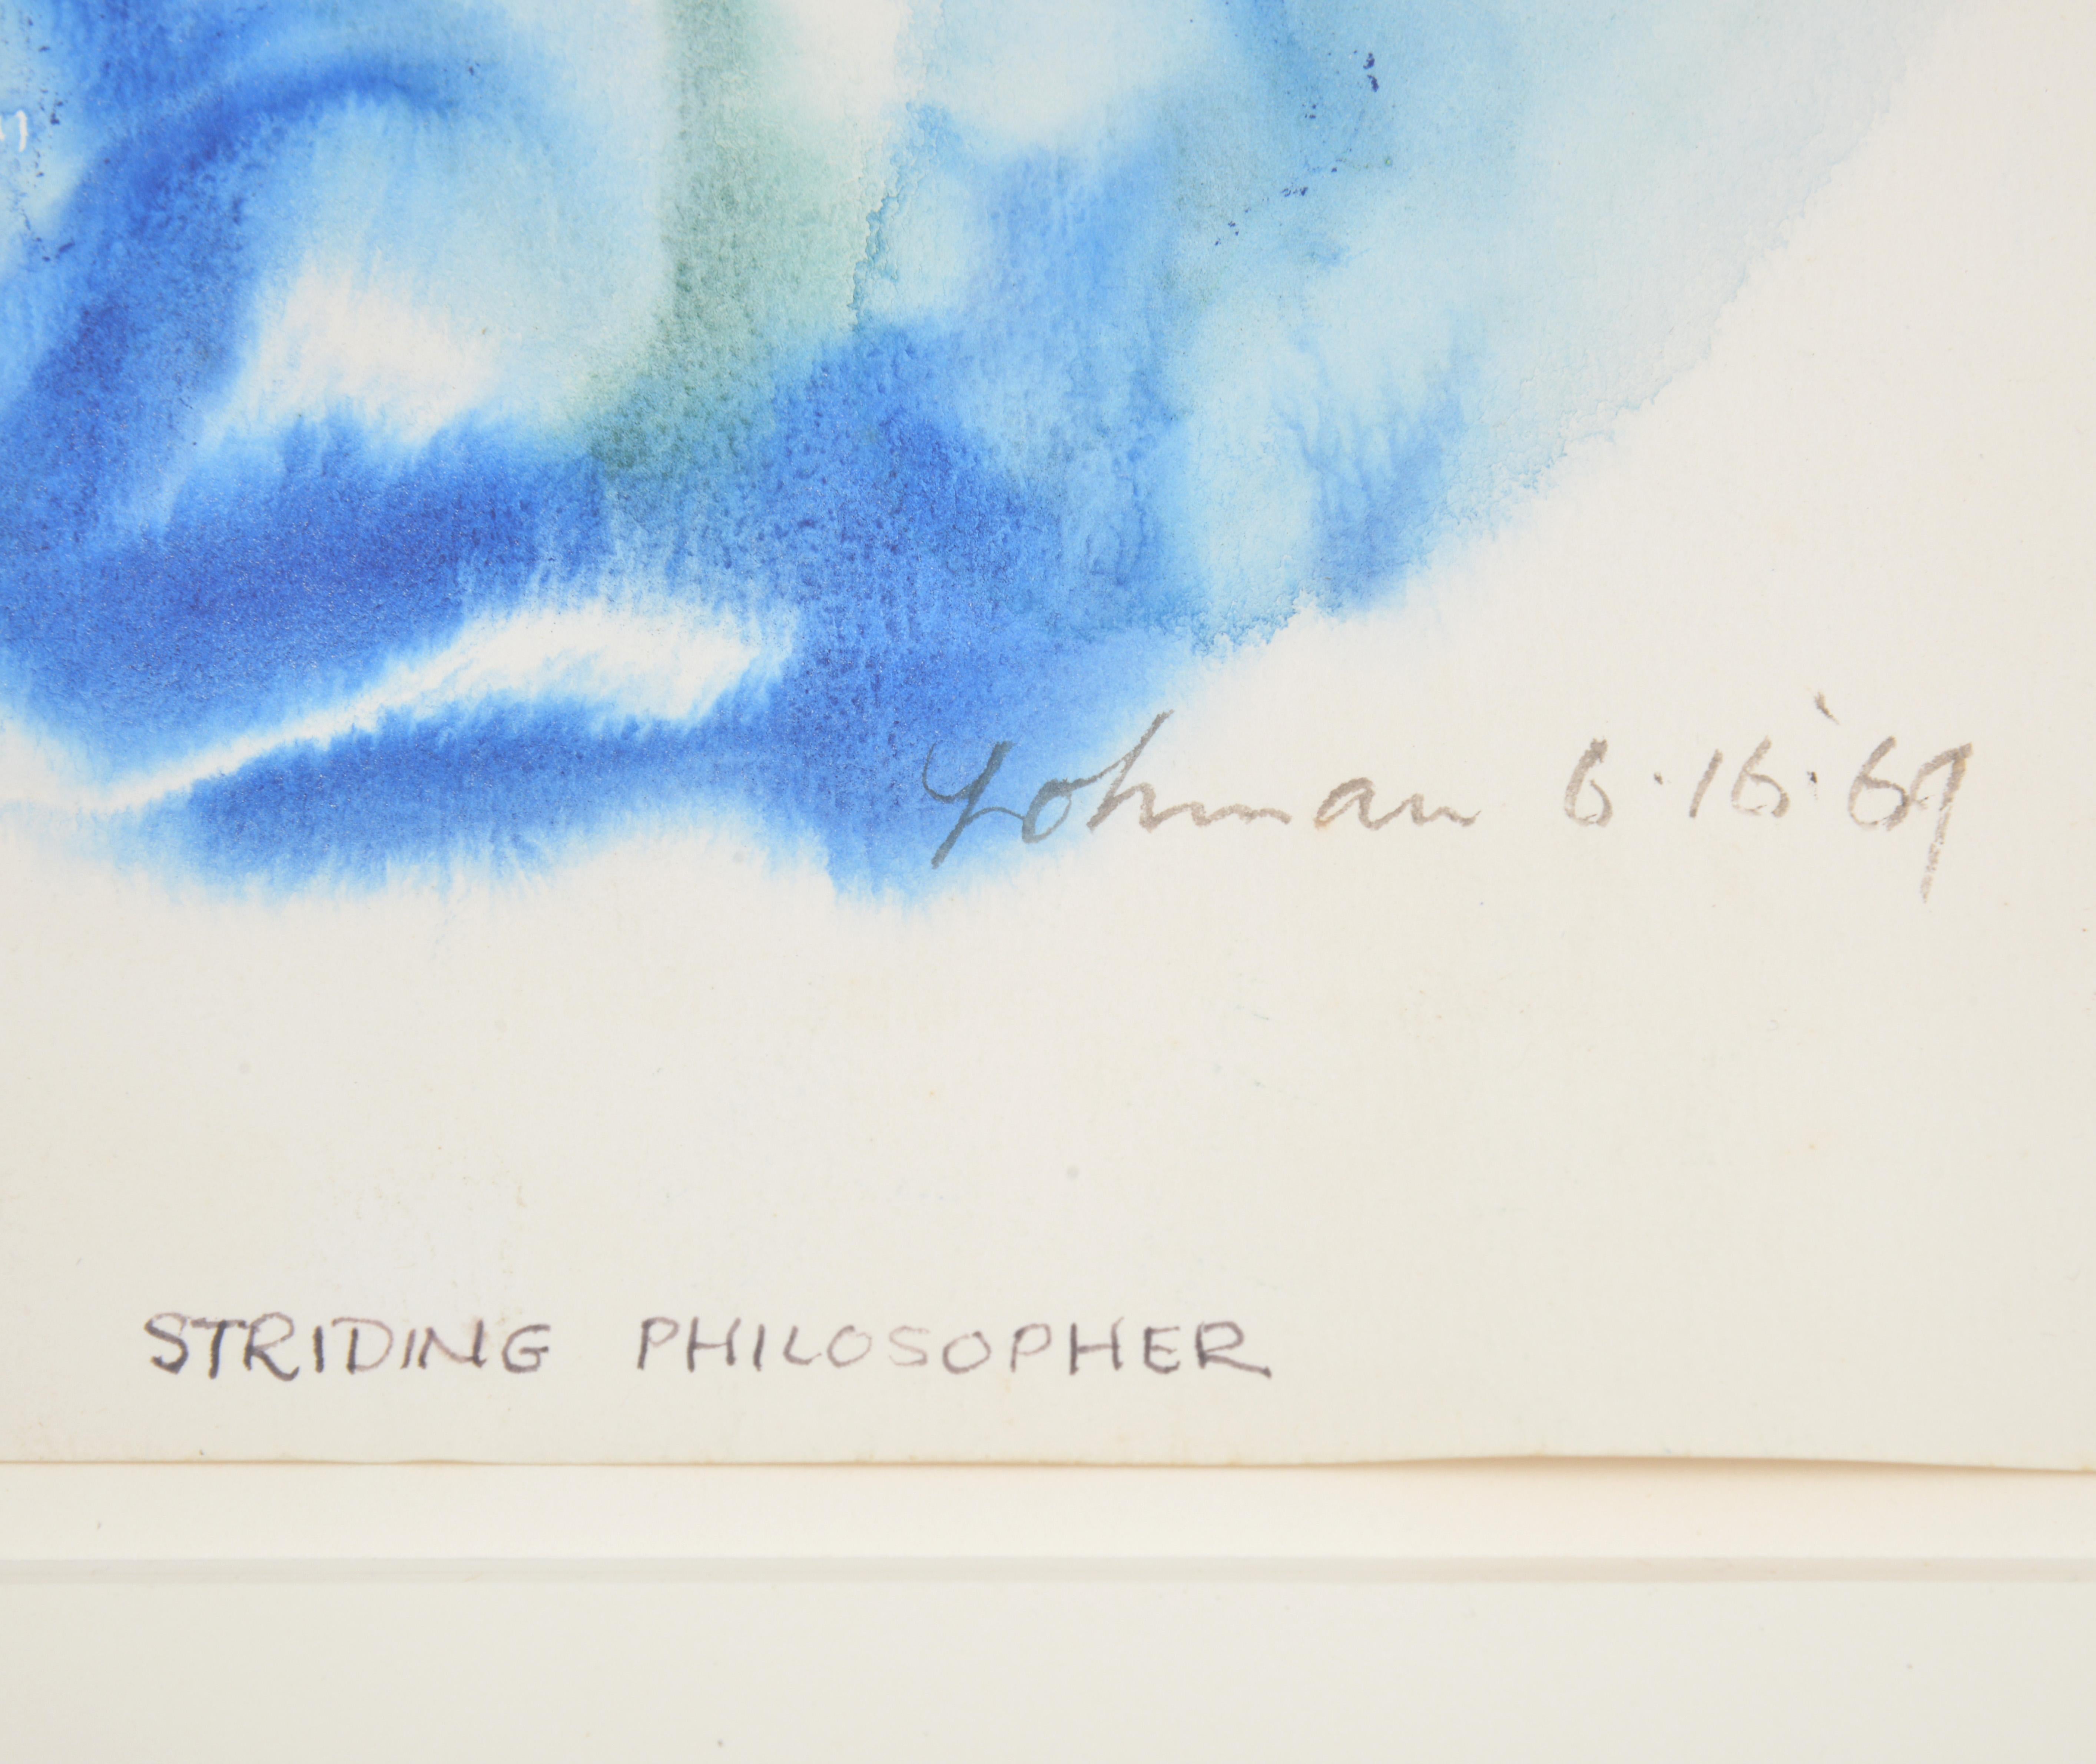 Lohman 6·16·'69
STRIDING PHILOSOPHER